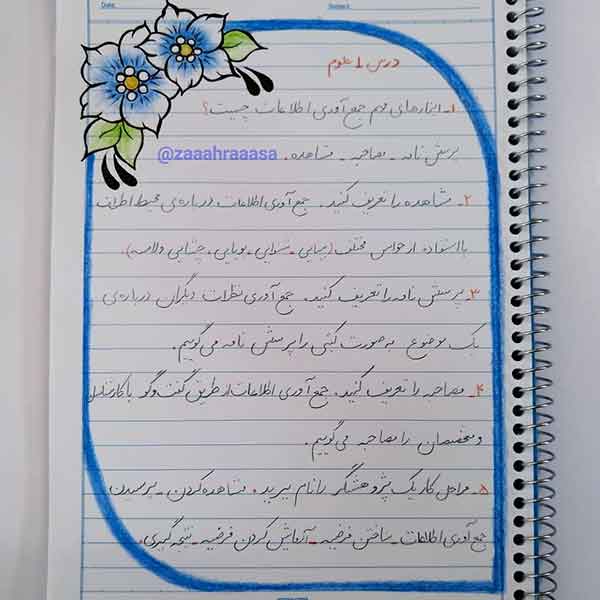 Date:
Subject:
درس 1 علوم
1ـ ابزارهای مهم جمع آوری اطلاعات چیست؟
پرسش نامه ـ مصاحبه ـ مشاهده.
@zaaahraaasa
2ـ مشاهده را تعریف کنید. جمع آوری اطلاعات درباره‌ی محیط اطراف
با استفاده از حواس مختلف (بینایی ـ شنوایی ـ بویایی ـ چشایی و لامسه).
3ـ پرسش نامه را تعریف کنید. جمع آوری نظرات دیگران درباره‌ی
یک موضوع به صورت کتبی را پرسش نامه می گوییم.
4ـ مصاحبه را تعریف کنید. جمع آوری اطلاعات از طریق گفت و گو با کارشناسان
و متخصصان را مصاحبه می گوییم.
5ـ مراحل کار یک پژوهشگر را نام ببرید. مشاهده کردن ـ پرسیدن
جمع آوری اطلاعات ـ ساختن فرضیه ـ آزمایش کردن فرضیه ـ نتیجه گیری.